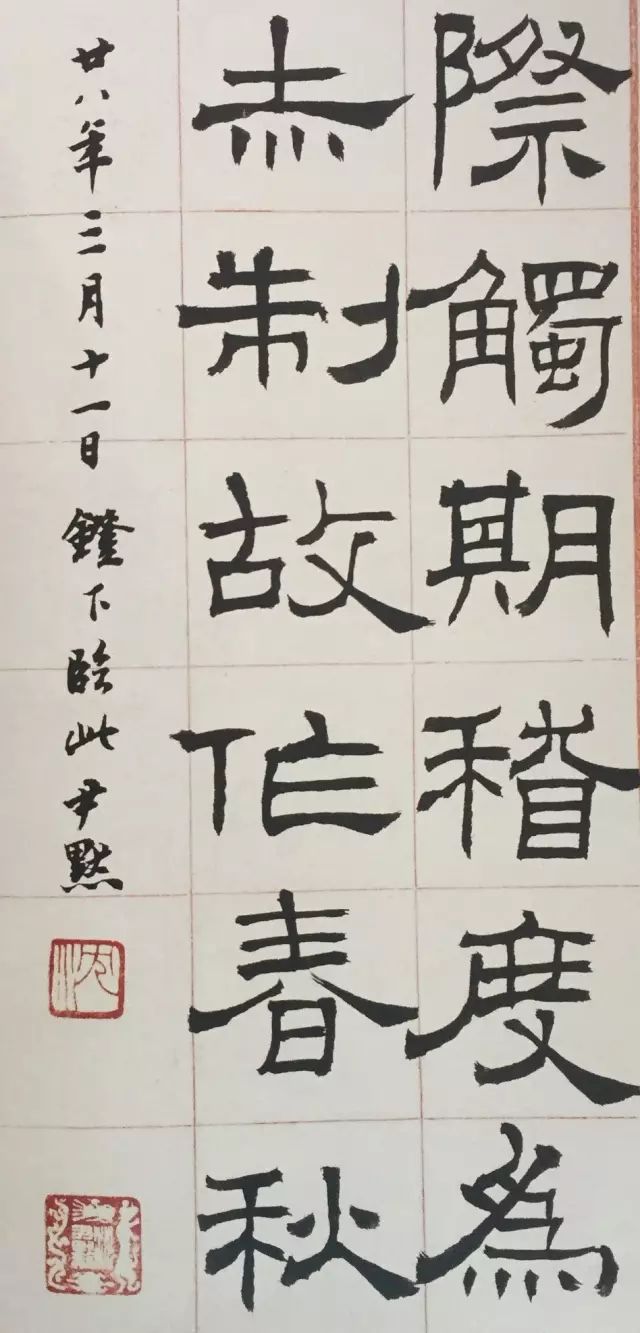 際觸期稽度爲
赤制故作春秋
廿八年三月十一日鐙下臨此尹默
沈